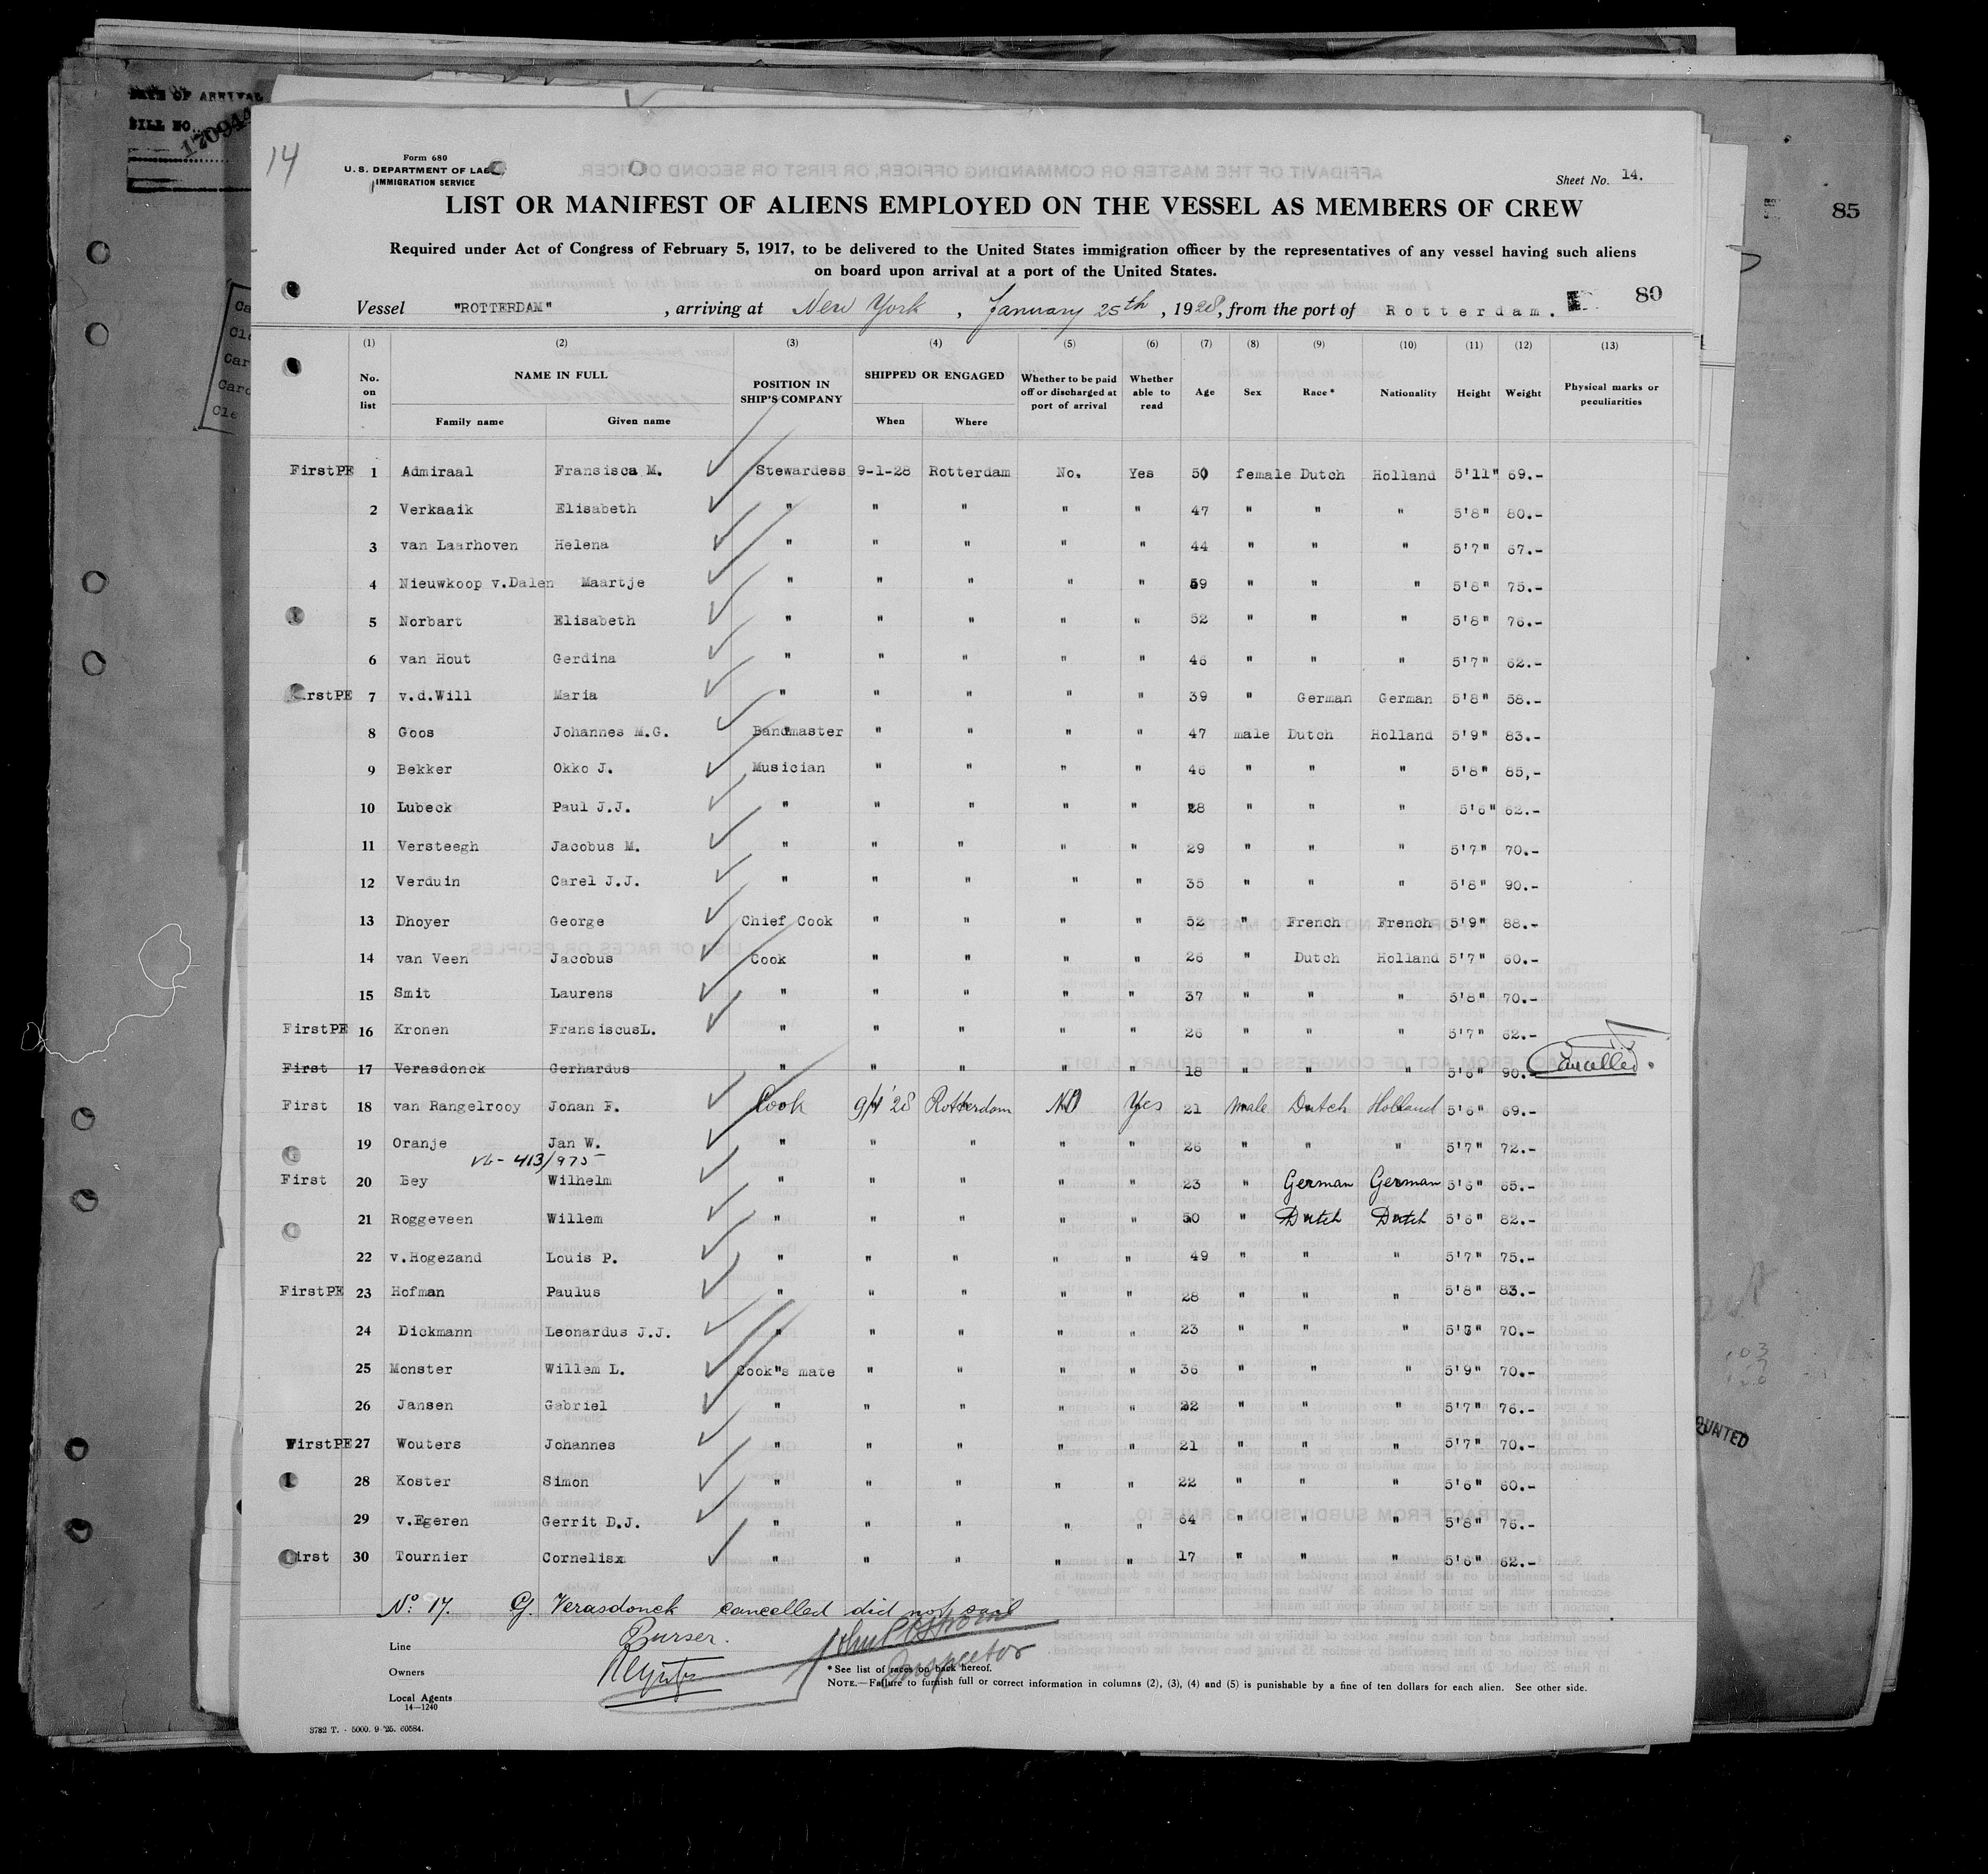 DATE OF ARRIVAL
BILL NO.
170944
14
Form 680
U. S. DEPARTMENT OF LABOR
IMMIGRATION SERVICE
Sheet No. 14.
LIST OR MANIFEST OF ALIENS EMPLOYED ON THE VESSEL AS MEMBERS OF CREW
85
Required under Act of Congress of February 5, 1917, to be delivered to the United States immigration officer by the representatives of any vessel having such aliens
on board upon arrival at a port of the United States.
80
Vessel "ROTTERDAM", arriving at New York, January 25th, 1928, from the port of Rotterdam.
(1) (2) (3) (4) (5) (6) (7) (8) (9) (10) (11) (12) (13)
No. on list NAME IN FULL Family name Given name POSITION IN SHIP'S COMPANY SHIPPED OR ENGAGED When Where Whether to be paid off or discharged at port of arrival Whether able to read Age Sex Race* Nationality Height Weight Physical marks or peculiarities
FirstPE 1 Admiraal Fransisca M. Stewardess 9-1-28 Rotterdam No. Yes 50 female Dutch Holland 5'11" 69.-
2 Verkaaik Elisabeth " " " " " 47 " " " 5'8" 80.-
3 van Laarhoven Helena " " " " " 44 " " " 5'7" 67.-
4 Nieuwkoop v.Dalen Maartje " " " " " 59 " " " 5'8" 75.-
5 Norbart Elisabeth " " " " " 52 " " " 5'8" 76.-
6 van Hout Gerdina " " " " " 46 " " " 5'7" 62.-
FirstPE 7 v.d.Will Maria " " " " " 39 " German German 5'8" 58.-
8 Goos Johannes M.G. Bandmaster " " " " 47 male Dutch Holland 5'9" 83.-
9 Bekker Okko J. Musician " " " " 46 " " " 5'8" 85,-
10 Lubeck Paul J.J. " " " " " 28 " " " 5'6" 62.-
11 Versteegh Jacobus M. " " " " " 29 " " " 5'7" 70.-
12 Verduin Carel J.J. " " " " " 35 " " " 5'8" 90.-
13 Dhoyer George Chief Cook " " " " 52 " French French 5'9" 88.-
14 van Veen Jacobus Cook " " " " 26 " Dutch Holland 5'7" 60.-
15 Smit Laurens " " " " " 37 " " " 5'8" 70.-
FirstPE 16 Kronen FransiscusL. " " " " " 26 " " " 5'7" 62.-
First 17 Verasdonck Gerhardus " " " " " 18 " " " 5'6" 90.- Cancelled.
First 18 van Rangelrooy Johan F. Cook 9/1 '28 Rotterdam NO Yes 21 male Dutch Holland 5'6" 69.-
19 Oranje Jan W. " " " " " 26 " " " 5'7" 72.-
413/975
First 20 Bey Wilhelm " " " " " 23 " German German 5'6" 65.-
21 Roggeveen Willem " " " " " 50 " Dutch Dutch 5'6" 82.-
22 v.Hogezand Louis P. " " " " " 49 " " " 5'7" 75.-
FirstPE 23 Hofman Paulus " " " " " 28 " " " 5'8" 83.-
24 Dickmann Leonardus J.J. " " " " " 23 " " " 5'6" 70.-
25 Monster Willem L. Cook"s mate " " " " 36 " " " 5'9" 70.-
26 Jansen Gabriel " " " " " 22 " " " 5'7" 76.-
FirstPE 27 Wouters Johannes " " " " " 21 " " " 5'7" 70.-
28 Koster Simon " " " " " 22 " " " 5'6" 60.-
29 v.Egeren Gerrit D.J. " " " " " 64 " " " 5'8" 76.-
First 30 Tournier Cornelisx " " " " " 17 " " " 5'6" 62.-
No: 17. G. Verasdonck cancelled did not sail
Purser.
Inspector
Line
Owners
Local Agents
14—1240
*See list of races on back hereof.
NOTE.—Failure to furnish full or correct information in columns (2), (3), (4) and (5) is punishable by a fine of ten dollars for each alien. See other side.
3782 T. - 5000. 9-'25. 60584.